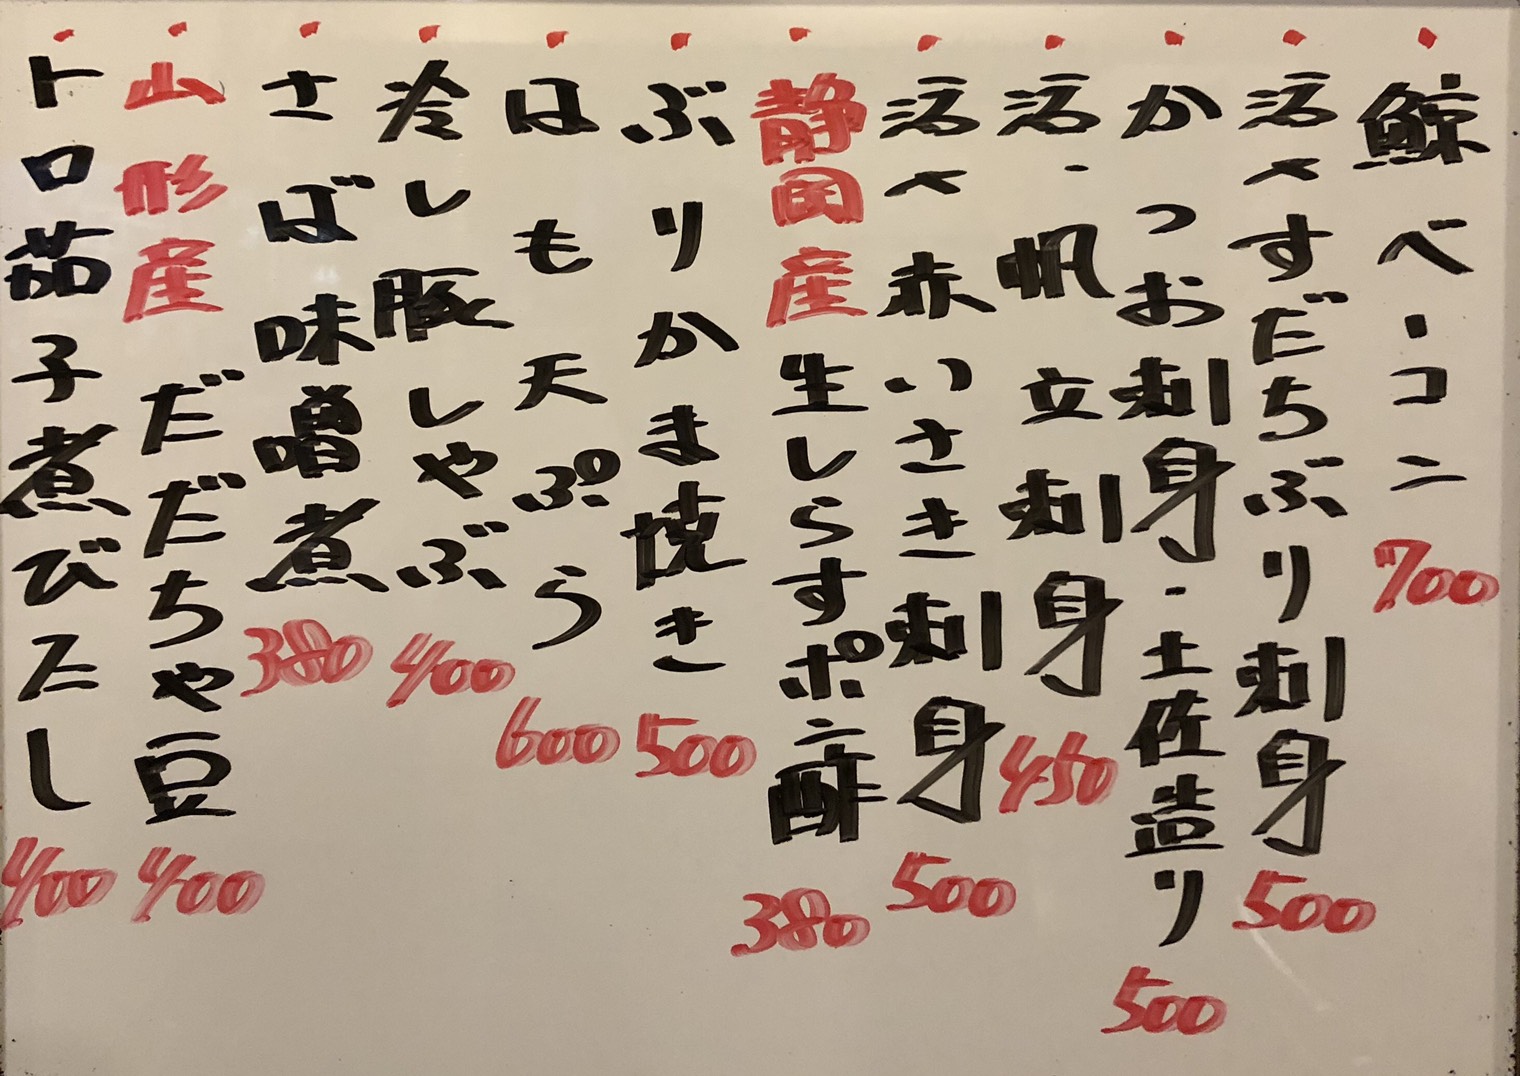 鯨ベーコン 700
活〆すだちぶり刺身 500
かつお刺身・土佐造り 500
活・帆立刺身 450
活〆赤いさき刺身 500
静岡産生しらすポン酢 380
ぶりかま焼き 500
はも天ぷら 600
冷し豚しゃぶ 400
さば味噌煮 380
山形産だだちゃ豆 400
トロ茄子煮びたし 400